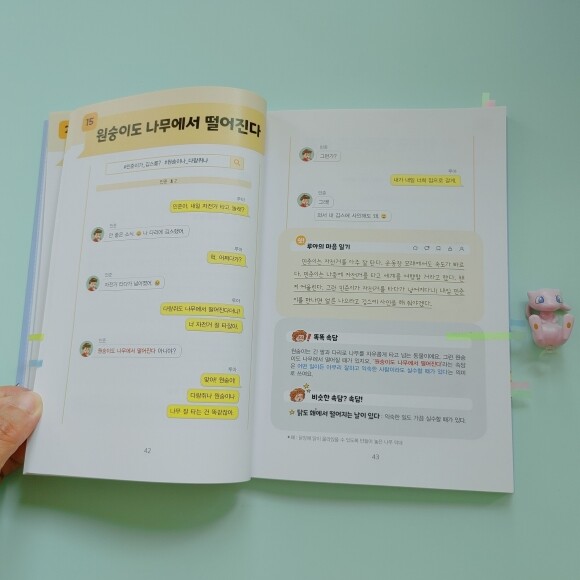 15
원숭이도 나무에서 떨어진다
민준 & 루아
루아
민준아, 내일 자전거 타고 놀래?
민준
안 좋은 소식. 나 다리에 깁스했어.
루아
헉, 어쩌다가?
민준
자전거 타다가 넘어졌어.
루아
다람쥐도 나무에서 떨어진다더니!
너 자전거 잘 타잖아.
민준
원숭이도 나무에서 떨어진다 아니야?
루아
맞아! 원숭이
다람쥐나 원숭이나
나무 잘 타는 건 똑같잖아
42
민준
그런가?
루아
내가 내일 너희 집으로 갈게.
민준
그래!
와서 내 깁스에 사인해도 돼.
루아의 마음 일기
민준이는 자전거를 아주 잘 탄다.
똑똑 속담
원숭이는 긴 팔과 다리로 나무를 자유롭게 타고 넘는 동물이에요. 그런 원숭
이도 나무에서 떨어질 때가 있지요. '원숭이도 나무에서 떨어진다'라는 속담
은 어떤 일이든 아무리 잘하고 익숙한 사람이라도 실수할 때가 있다는 의미
로 쓰여요.
비슷한 속담? 속담!
★ 닭도 홰에서 떨어지는 날이 있다 : 익숙한 일도 가끔 실수할 때가 있다.
43